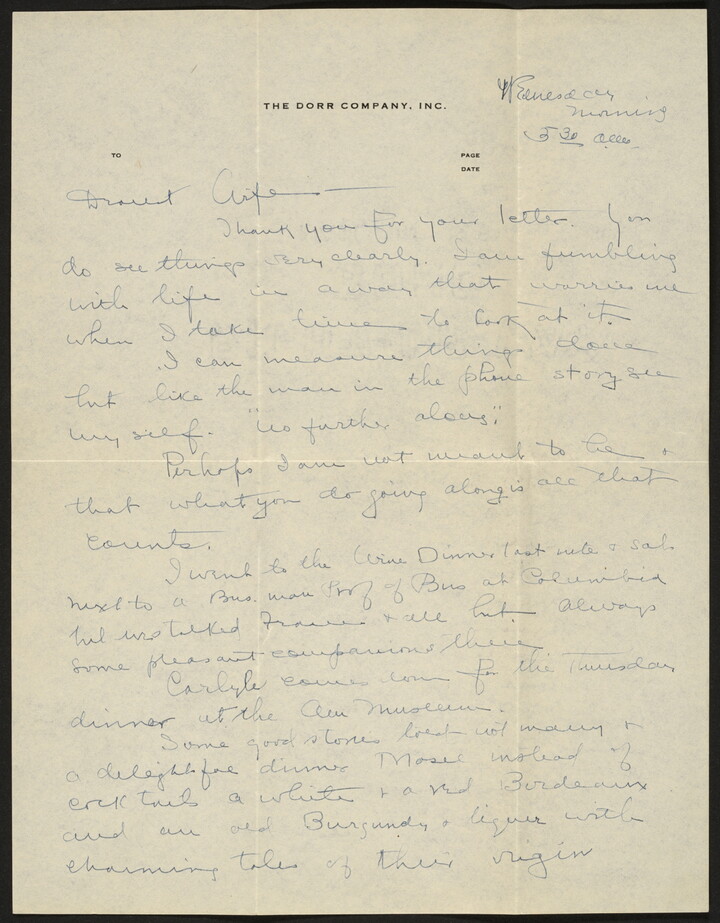 THE DORR COMPANY, INC.
Wednesday
morning
5 30 am
TO
PAGE
DATE
Dearest
Thank you for your letter. You
do see things very clearly. I am fumbling
with life in a way that worries me
when I take time to look at it.
I can measure things done
but like the man in the phone story see
my self. "no further along."
Perhaps I am not meant to be &
that what you do going along is all that
counts.
I went to the Wine Dinner last nite & sat
next to a Bus. man Prof of Bus at Columbia
but we talked France & all but. Always
some pleasant companions there
Carlyle comes down for the Thursday
dinner at the Am Museum.
Some good stories but not many &
a delightful dinner Mosel instead of
cocktails a white & a red Bordeaux
and an old Burgundy & liquer with
charming tales of their origin